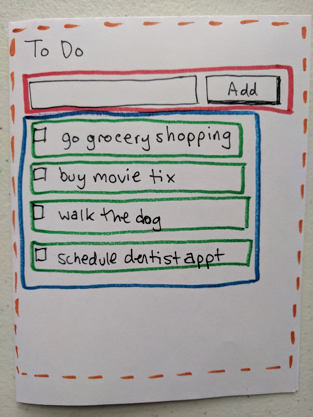 To Do
Add
go grocery shopping
buy movie tix
walk the dog
schedule dentist appt